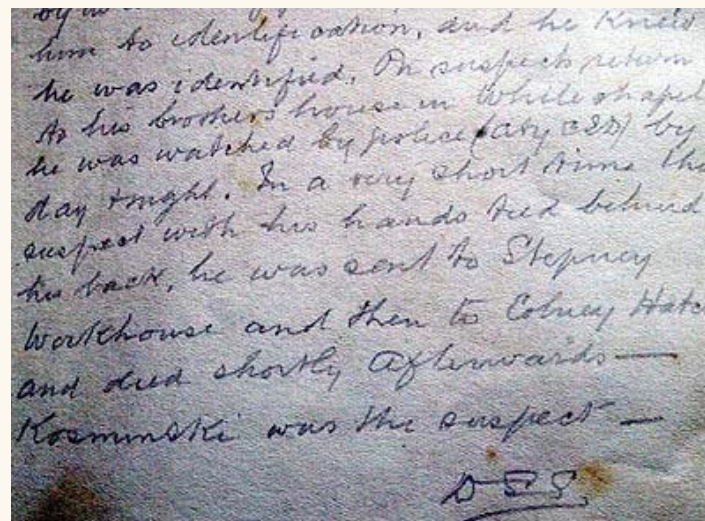 him to identification, and he knew
he was identified. On suspects return
to his brothers house in Whitechapel
he was watched by police (City CID) by
day & night. In a very short time the
suspect with his hands tied behind
his back, he was sent to Stepney
Workhouse and then to Colney Hatch
and died shortly afterwards —
Kosminski was the suspect —
DSS